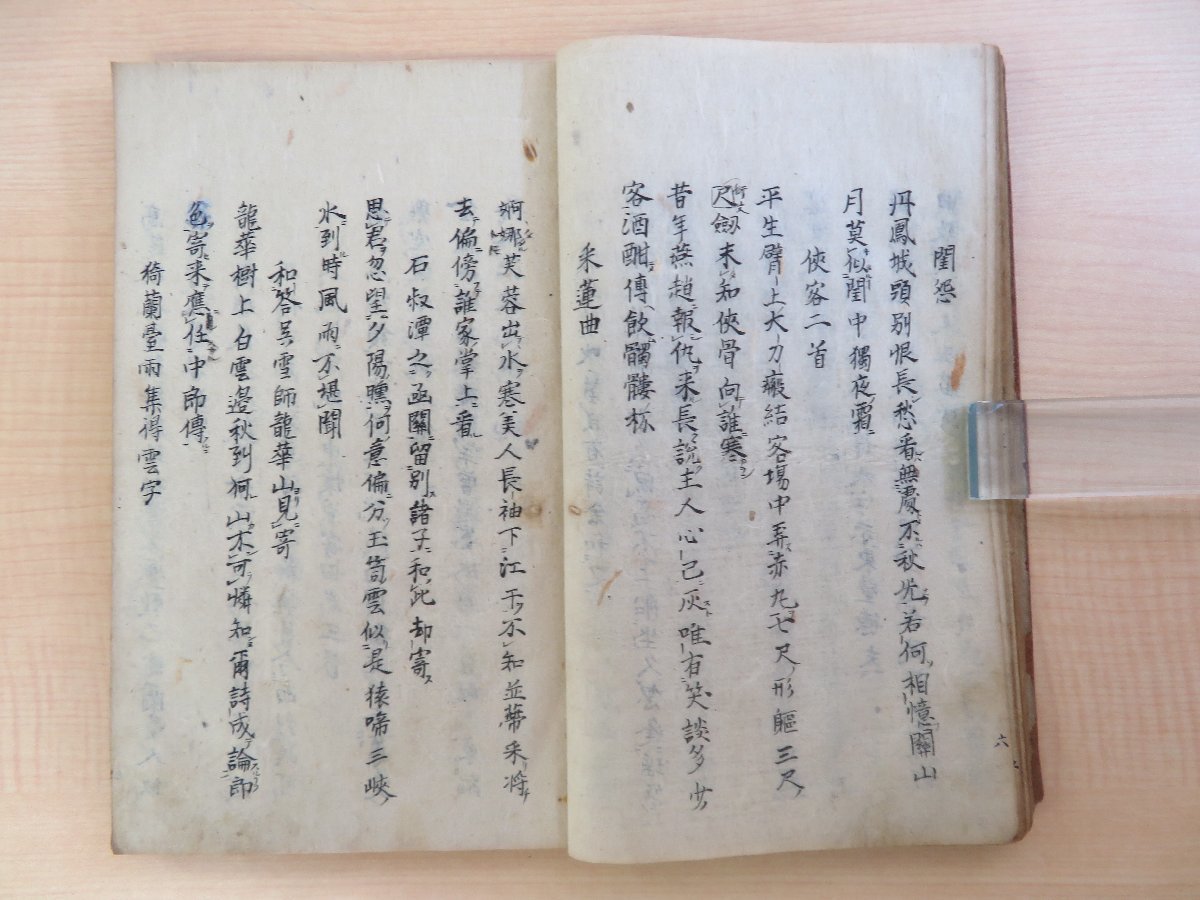 閨怨
丹鳳城頭別恨長愁看無處不秋光若何相憶關山
月莫似閨中獨夜霜
俠客二首
平生臂上大刀瘢結客場中弄赤丸七尺形軀三尺
尺劔未知俠骨向誰寒
昔年燕趙報仇来長說主人心已灰唯有笑談多少
客酒酣傳飲髑髏杯
采蓮曲
婀娜芙蓉出水寒美人長袖下江干不知並蔕采将
去偏傍誰家掌上看
石叔潭之函關留別諸子和此却寄
思君忽望夕陽曛何意偏分玉笥雲似是猿啼三峽
水到時風雨不堪聞
和答吴雪師龍華山見寄
龍華樹上白雲邉秋到河山不可憐知爾詩成論即
色寄来應任中郎傳
猗蘭臺雨集得雲字
六